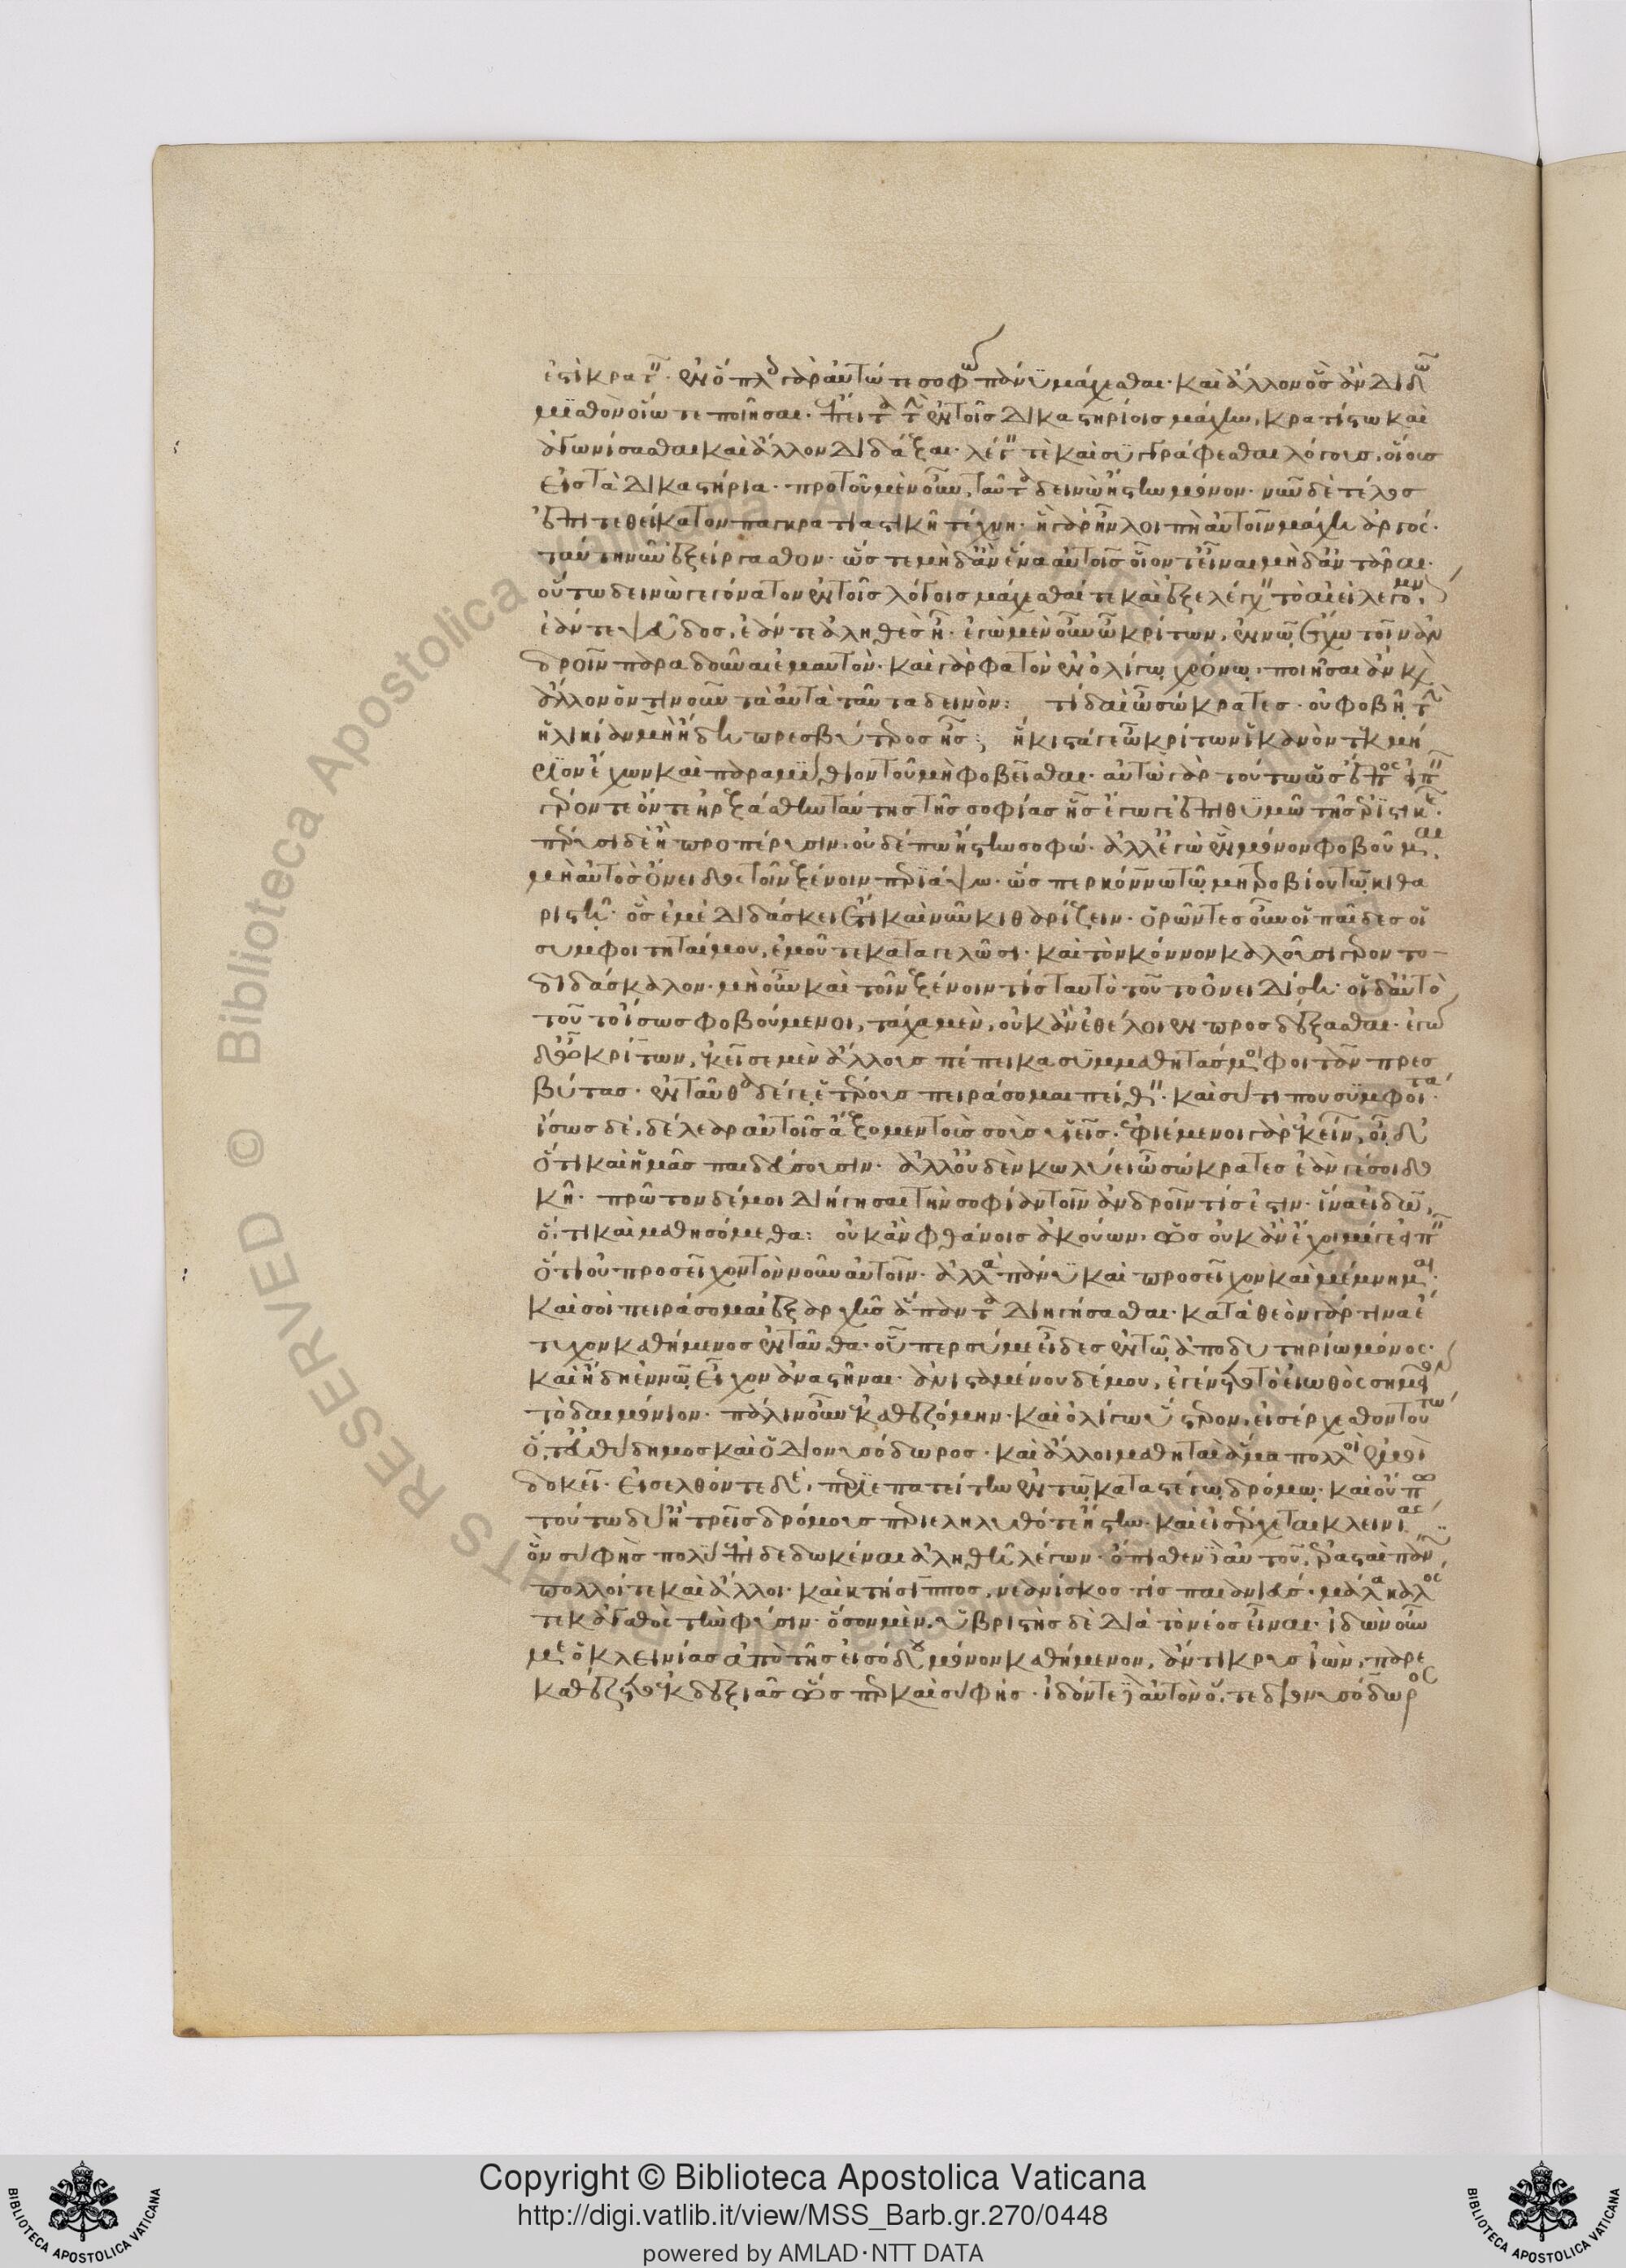 ἐστὶ κρατεῖν. ἐν ὅπλοις γὰρ αὐτώ τε σοφὼ πάνυ μάχεσθαι. καὶ ἄλλον ὃς ἂν διδῷ
μισθὸν οἵω τε ποιῆσαι. ἔπειτα τὴν ἐν τοῖς δικαστηρίοις μάχην, κρατίστω καὶ
ἀγωνίσασθαι καὶ ἄλλον διδάξαι λέγειν τε καὶ συγγράφεσθαι λόγους, οἵους
εἰς τὰ δικαστήρια. προτοῦ μὲν οὖν, ταῦτα δεινὼ ἤστην μόνον. νῦν δὲ τέλος
ἐπιτεθείκατον παγκρατιαστικῇ τέχνῃ. ἣ γὰρ ἦν λοιπὴ αὐτοῖν μάχη ἀργός.
ταύτην νῦν ἐξείργασθον. ὥστε μηδ' ἂν ἕνα αὐτοῖς οἷόν τ' εἶναι μηδ' ἀντᾶραι.
οὕτω δεινὼ γεγόνατον ἐν τοῖς λόγοις μάχεσθαί τε καὶ ἐξελέγχειν τὸ ἀεὶ λεγόμενον,
ἐάν τε ψεῦδος, ἐάν τε ἀληθὲς ᾖ. ἐγὼ μὲν οὖν ὦ κρίτων, ἐν νῷ ἔχω τοῖν ἀν
δροῖν παραδοῦναι ἐμαυτόν. καὶ γάρ φατον ἐν ὀλίγῳ χρόνῳ, ποιῆσαι ἂν καὶ
ἄλλον ὁντινοῦν τὰ αὐτὰ ταῦτα δεινόν: τί δαὶ ὦ σώκρατες. οὐ φοβῇ τὴν
ἡλικίαν μὴ ἤδη πρεσβύτερος ᾖς; ἥκιστά γε ὦ κρίτων ἱκανὸν τεκμή
ριον ἔχω καὶ παραμύθιον τοῦ μὴ φοβεῖσθαι. αὐτὼ γὰρ τούτω ὡς ἔπος εἰπεῖν
γέροντε ὄντε ἠρξάσθην ταύτης τῆς σοφίας ἧς ἔγωγε ἐπιθυμῶ τῆς ἐριστικῆς.
πέρυσι δὲ ἢ προπέρυσιν, οὐδέπω ἤστην σοφώ. ἀλλ' ἐγὼ ἓν μόνον φοβοῦμαι,
μὴ αὐτὸς ὄνειδος τοῖν ξένοιν περιάψω. ὥσπερ κόννῳ τῷ μητροβίου τῷ κιθα
ριστῇ. ὃς ἐμὲ διδάσκει ἔτι καὶ νῦν κιθαρίζειν. ὁρῶντες οὖν οἱ παῖδες οἱ
συμφοιτηταί μου, ἐμοῦ τε καταγελῶσι. καὶ τὸν κόννον καλοῦσι γεροντο-
διδάσκαλον. μὴ οὖν καὶ τοῖν ξένοιν τίς ταυτὸ τοῦτο ὀνειδίσῃ. οἱ δ' αὐτὸ
τοῦτο ἴσως φοβούμενοι, τάχα με, οὐκ ἂν ἐθέλοιεν προσδέξασθαι. ἐγὼ
δ' ὦ κρίτων, ἐκεῖσε μὲν ἄλλους πέπεικα συμμαθητάς μοι φοιτᾶν πρεσ
βύτας. ἐνταῦθα δέ γε ἑτέρους πειράσομαι πείθειν. καὶ σύ τί που συμφοίτα.
ἴσως δὲ, δέλεαρ αὐτοῖς ἄξομεν τοὺς σοὺς υἱεῖς. ἐφιέμενοι γὰρ ἐκείνων, οἶδ'
ὅτι καὶ ἡμᾶς παιδεύσουσιν. ἀλλ' οὐδὲν κωλύει ὦ σώκρατες ἐάν γέ σοι δο
κῇ. πρῶτον δέ μοι διήγησαι τὴν σοφίαν τοῖν ἀνδροῖν τίς ἐστιν. ἵνα εἰδῶ,
ὅ,τι καὶ μαθησόμεθα: οὐκ ἂν φθάνοις ἀκούων. ὡς οὐκ ἂν ἔχοιμί γε εἰπεῖν
ὅτι οὐ προσεῖχον τὸν νοῦν αὐτοῖν. ἀλλὰ πάνυ καὶ προσεῖχον καὶ μέμνημαι.
καί σοι πειράσομαι ἐξ ἀρχῆς ἅπαντα διηγήσασθαι. κατὰ θεὸν γάρ τινα ἔ
τυχον καθήμενος ἐνταῦθα. οὗπερ σύ με εἶδες ἐν τῷ ἀποδυτηρίῳ μόνος.
καὶ ἤδη ἐν νῷ εἶχον ἀναστῆναι. ἀνισταμένου δέ μου, ἐγένετο τὸ εἰωθὸς σημεῖον
τὸ δαιμόνιον. πάλιν οὖν ἐκαθεζόμην. καὶ ὀλίγῳ ὕστερον, εἰσέρχεσθον τούτω
ὅ,τ' εὐθύδημος καὶ ὁ διονυσόδωρος. καὶ ἄλλοι μαθηταὶ ἅμα πολλοὶ ἐμοὶ
δοκεῖ. εἰσελθόντε δὲ, περιεπατείτην ἐν τῷ καταστέγῳ δρόμῳ. καὶ οὔπω
τούτω δύ' ἢ τρεῖς δρόμους περιεληλυθότε ἤστην. καὶ εἰσέρχεται κλεινίας,
ὃν σὺ φῂς πολὺ ἐπιδεδωκέναι ἀληθῆ λέγων. ὄπισθεν δὲ αὐτοῦ, ἐρασταὶ πάνυ
πολλοί τε καὶ ἄλλοι. καὶ κτήσιππος, νεανίσκος τίς παιανιεύς. μάλα καλός
τε κἀγαθὸς τὴν φύσιν. ὅσον μὲν, ὑβριστὴς δὲ διὰ τὸ νέος εἶναι. ἰδὼν οὖν
με ὁ κλεινίας ἀπὸ τῆς εἰσόδου μόνον καθήμενον, ἄντικρυς ἰὼν, παρε
καθέζετο ἐκ δεξιᾶς ὥσπερ καὶ σὺ φῄς. ἰδόντε δὲ αὐτὸν ὅ,τε διονυσόδωρος
Copyright © Biblioteca Apostolica Vaticana
http://digi.vatlib.it/view/MSS_Barb.gr.270/0448
powered by AMLAD·NTT DATA